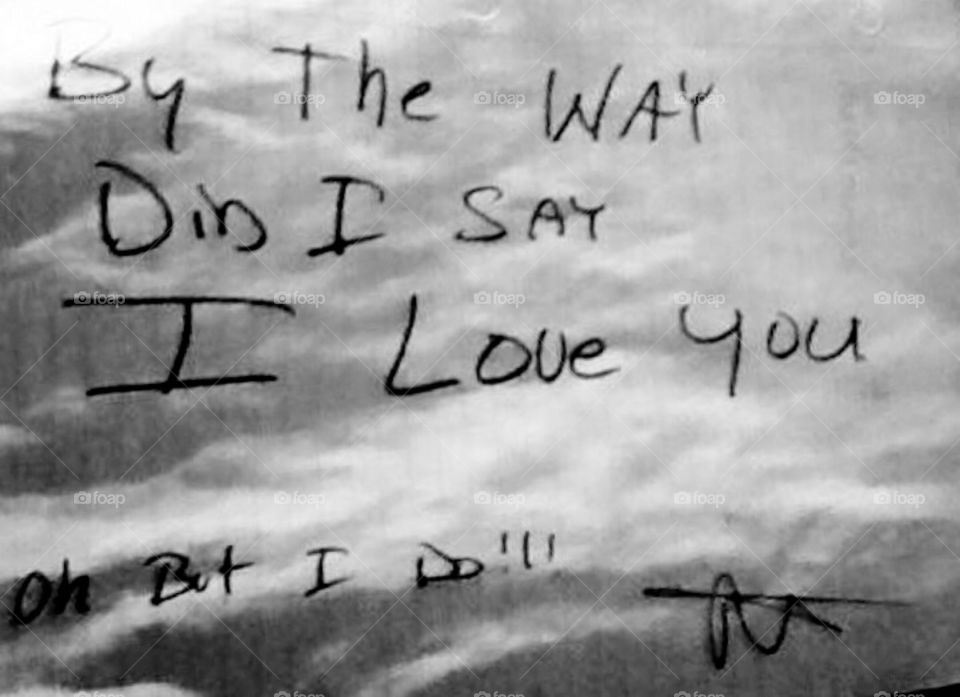 By The WAY
DiD I SAY
I Love you
Oh But I Do!!!